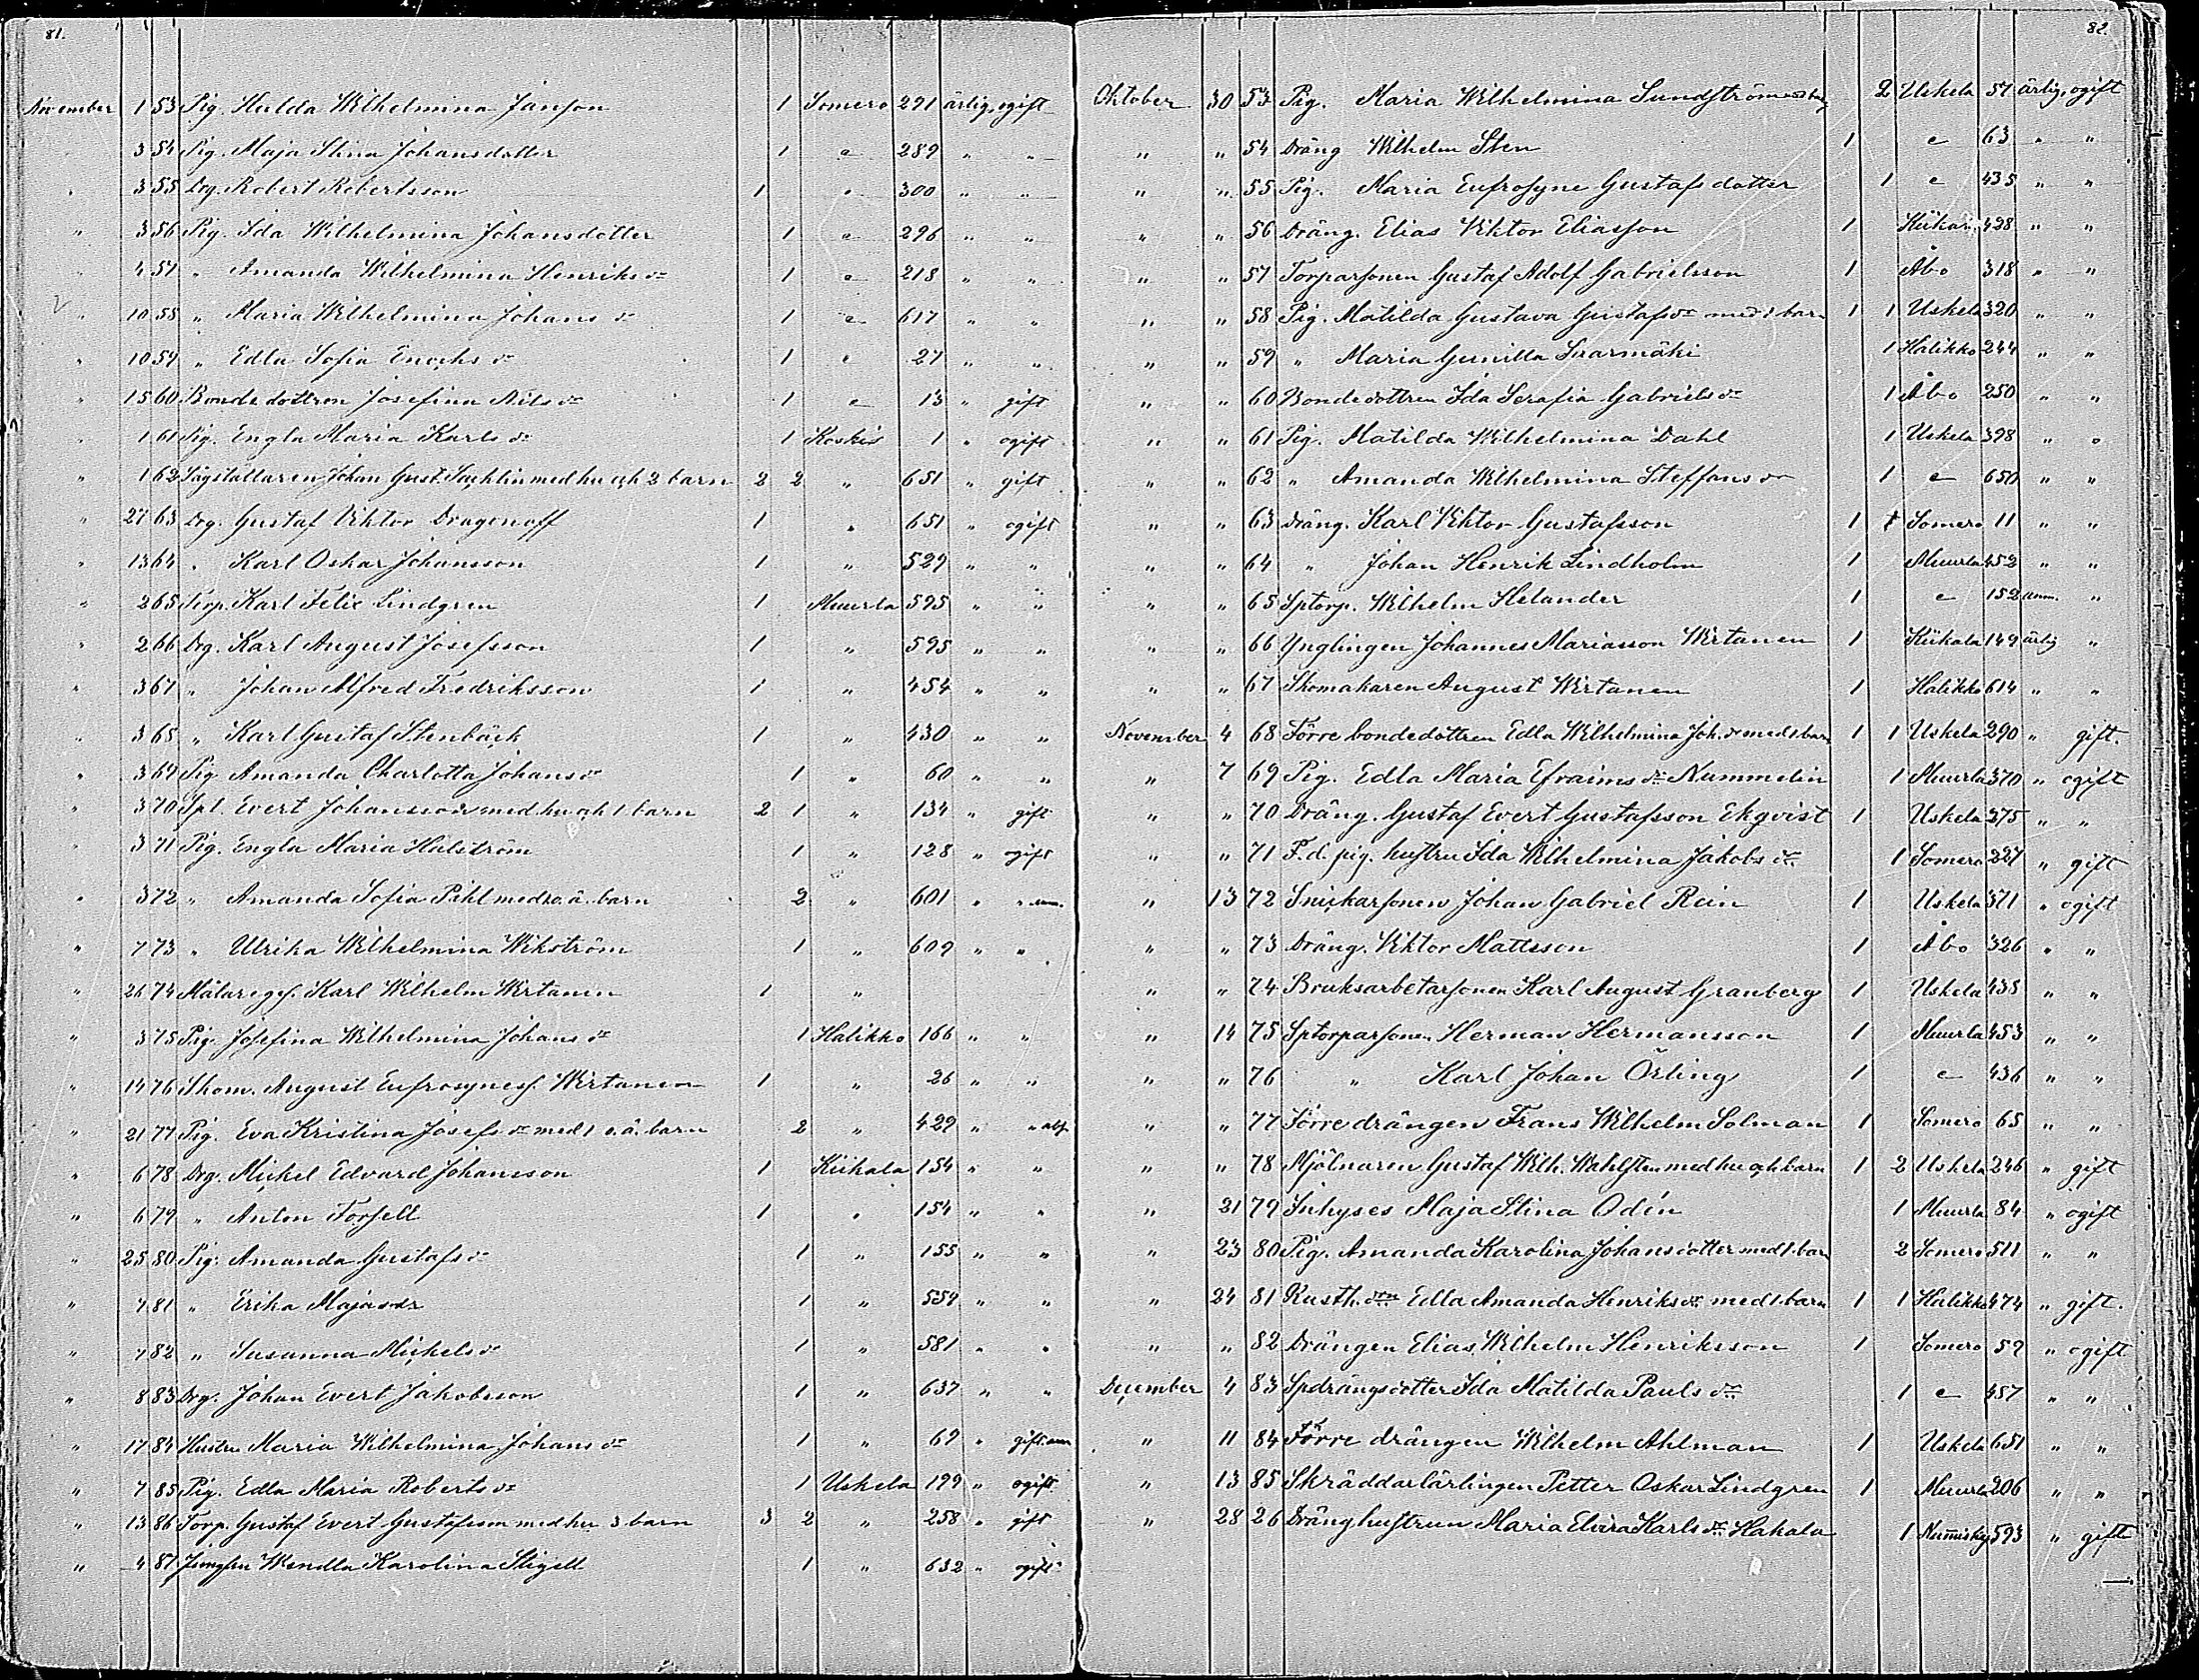 81.
November 1 53 Pig. Hulda Wilhelmina Janson 1 Somero 291 ärlig ogift
3 54 Pig. Maja Stina Johansdotter 1 e 289 " "
" 3 55 Drg. Robert Robertsson 1 " 300 " "
" 3 56 Pig. Ida Wilhelmina Johansdotter 1 e 296 " "
4 57 " Amanda Wilhelmina Henriks dr 1 e 218 " "
" 10 58 " Maria Wilhelmina Johans dr 1 e 617 " "
" 10 59 " Edla Sofia Enochs dr 1 e 27 " "
" 15 60 Bondedottren Josefina Nils dr 1 e 13 " gift
" 1 61 Pig. Engla Maria Karls dr 1 Koskis 1 " ogift
" 1 62 Johan Gust. med hu och 2 barn 2 2 " 651 " gift
" 27 63 Drg. Gustaf Viktor Dragonoff 1 " 651 " ogift
" 13 64 " Karl Oskar Johansson 1 " 529 " "
" 2 65 Torp. Karl Felix Lindgren 1 Muurla 595 " "
" 2 66 Drg. Karl August Josefsson 1 " 595 " "
" 3 67 " Johan Alfred Fredriksson 1 " 454 " "
" 3 68 " Karl Gustaf Stenbäck 1 " 430 " "
" 3 69 Pig Amanda Charlotta Johans dr 1 " 60 " "
" 3 70 Spt. Evert Johansson med hu och 1 barn 2 1 " 134 " gift
" 3 71 Pig. Engla Maria Halström 1 " 128 " ogift
" 3 72 " Amanda Sofia Pihl med o.ä. barn 2 " 601 " "
" 7 73 " Ulrika Wilhelmina Wikström 1 " 609 " "
" 26 74 Målareges. Karl Wilhelm Wirtanen 1 "
" 3 75 Pig. Josefina Wilhelmina Johans dr 1 Halikko 166 " "
" 14 76 Skom. August Eufrosynes. Wirtanen 1 " 26 " "
" 21 77 Pig. Eva Kristina Josefs dr med 1 o.ä. barn 2 " 429 " "
" 6 78 Drg. Mickel Edvard Johansson 1 Kiikala 154 " "
" 6 79 " Anton Forsell 1 " 154 " "
" 25 80 Pig. Amanda Gustafs dr 1 " 155 " "
" 7 81 " Erika Majasdr 1 " 554 " "
" 7 82 " Susanna Mickels dr 1 " 581 " "
" 8 83 Drg. Johan Evert Jakobsson 1 " 637 " "
" 17 84 Hustru Maria Wilhelmina Johans dr 1 " 69 " gift
" 7 85 Pig. Edla Maria Roberts dr 1 Uskela 199 " ogift
" 13 86 Torp. Gustaf Evert Gustafsson med hu 3 barn 3 2 " 258 " gift
" 4 87 Jungfru Wendla Karolina Stigell 1 " 632 " ogift
82.
Oktober 30 53 Pig. Maria Wilhelmina Sundström 2 Uskela 57 ärlig ogift
" " 54 Dräng Wilhelm Sten 1 e 63 " "
" " 55 Pig. Maria Eufrosyne Gustafsdotter 1 e 435 " "
" " 56 Dräng. Elias Viktor Eliasson 1 428 " "
" " 57 Torparsonen Gustaf Adolf Gabrielsson 1 Åbo 318 " "
" " 58 Pig. Matilda Gustava Gustafs dr med 1 barn 1 1 Uskela 320 " "
" " 59 " Maria Gunilla Suarmäki 1 Halikko 244 " "
" " 60 Bondedottren Ida Serafia Gabriels dr 1 Åbo 250 " "
" " 61 Pig. Matilda Wilhelmina Dahl 1 Uskela 398 " "
" " 62 " Amanda Wilhelmina Steffans dr 1 e 650 " "
" " 63 Dräng. Karl Viktor Gustafsson 1 Somero 11 " "
" " 64 " Johan Henrik Lindholm 1 Muurla 452 " "
" " 65 Sptorp. Wilhelm Helander 1 e 152 anm. "
" " 66 Ynglingen Johannes Mariasson Wirtanen 1 Kiikala 149 ärlig "
" " 67 Skomakaren August Wirtanen 1 Halikko 614 " "
November 4 68 Förre bondedottren Edla Wilhelmina Joh. dr med 1 barn 1 1 Uskela 290 " gift.
" 7 69 Pig. Edla Maria Efraims dr Nummelin 1 Muurla 370 " ogift
" " 70 Dräng. Gustaf Evert Gustafsson Ekqvist 1 Uskela 375 " "
" " 71 F.d. pig. hustru Ida Wilhelmina Jakobs dr 1 Somero 227 " gift
" 13 72 Snickarsonen Johan Gabriel Rein 1 Uskela 371 " ogift
" " 73 Dräng. Viktor Mattsson 1 Åbo 326 " "
" " 74 Bruksarbetarsonen Karl August Granberg 1 Uskela 435 " "
" 14 75 Sptorparsonen Herman Hermansson 1 Muurla 453 " "
" " 76 " Karl Johan Örling 1 e 436 " "
" " 77 Förre drängen Frans Wilhelm Solman 1 Somero 65 " "
" " 78 Mjölnaren Gustaf Wilh. Wahlsten med hu och barn 1 2 Uskela 246 " gift
" 21 79 Inhyses Maja Stina Odén 1 Muurla 84 " ogift
" 23 80 Pig. Amanda Karolina Johansdotter med 1 barn 2 Somero 511 " "
" 24 81 Rusth. drn Edla Amanda Henriks dr med 1 barn 1 1 Halikko 474 " gift.
" " 82 Drängen Elias Wilhelm Henriksson 1 Somero 59 " ogift
December 4 83 Spdrängsdotter Ida Matilda Pauls dr 1 e 457 " "
" 11 84 Förre drängen Wilhelm Ahlman 1 Uskela 651 " "
" 13 85 Skräddarlärlingen Petter Oskar Lindgren 1 Muurla 206 " "
" 28 26 Dränghustrun Maria Elvira Karls dr Hakala 1 593 " gift